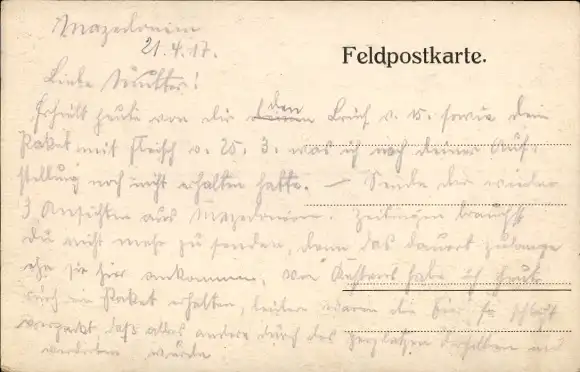 Mazedonien
21.4.17.
Feldpostkarte.
Liebe Mutter!
Erhielt heute von dir den Brief v. 15. sowie dein
Paket mit Fleisch v. 25. 3. was ich nach deiner Auf-
stellung noch nicht erhalten hatte. — Sende dir wieder
3 Ansichten aus Mazedonien. Zeitungen brauchst
du nicht mehr zu senden, denn das dauert zu lange
ehe sie hier ankommen, von habe ich heute
auch ein Paket erhalten, leider waren die Eier so schlecht
verpackt daß alles andere durch das zerplatzen derselben
verdorben wurde